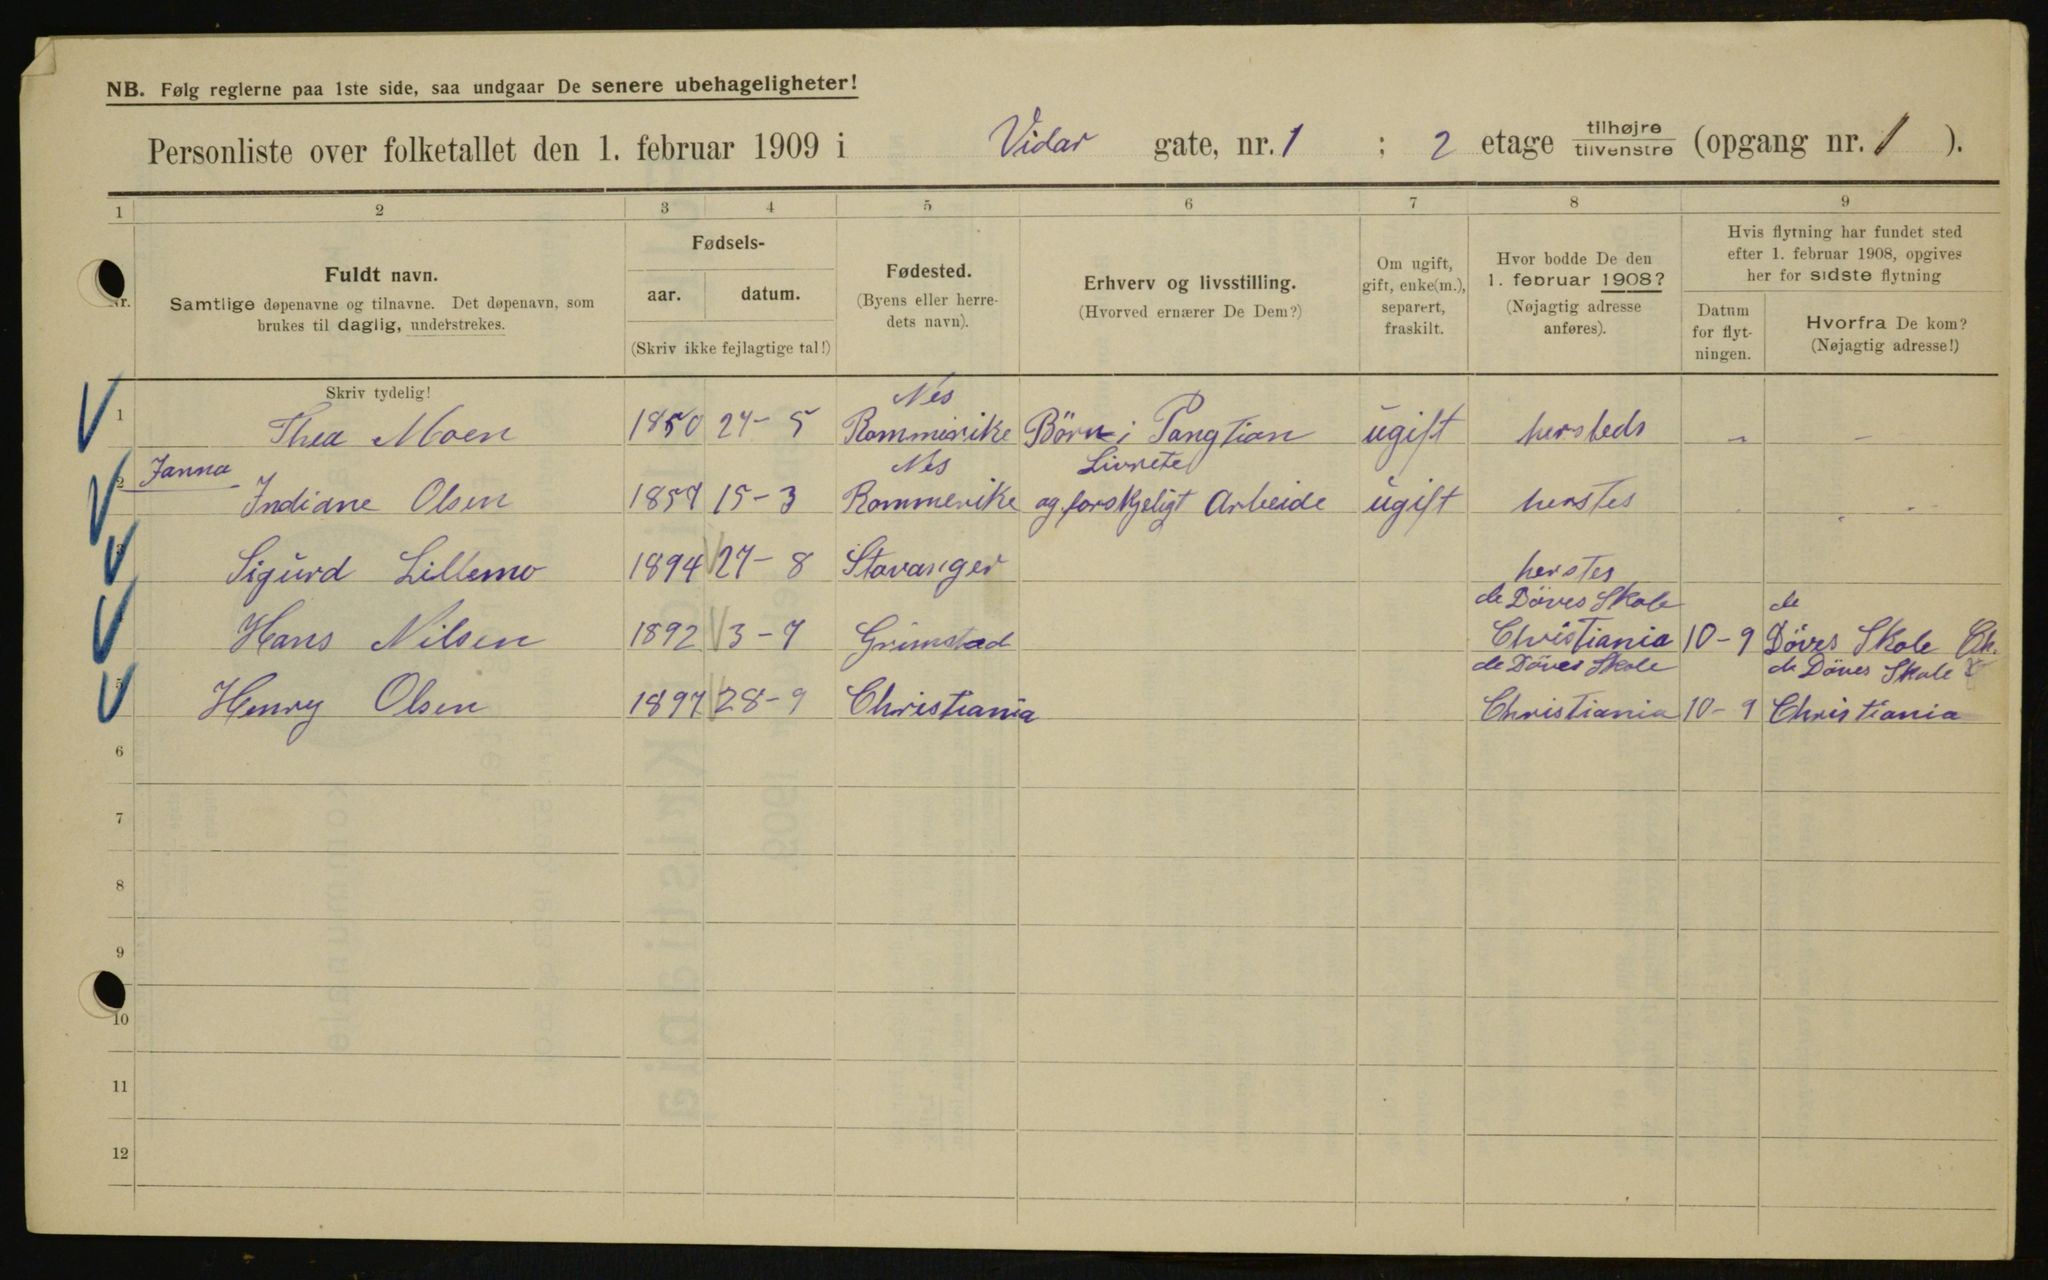 NB. Følg reglerne paa 1ste side, saa undgaar De senere ubehageligheter!
Personliste over folketallet den 1. februar 1909 i Vidar gate, nr. 1 ; 2 etage tilhøjre tilvenstre (opgang nr. 1 ).
1 2 3 4 5 6 7 8 9
Nr.
Fuldt navn.
Samtlige døpenavne og tilnavne. Det døpenavn, som
brukes til daglig, understrekes.
Fødsels-
aar. datum.
(Skriv ikke fejlagtige tal!)
Fødested.
(Byens eller herre-
dets navn).
Erhverv og livsstilling.
(Hvorved ernærer De Dem?)
Om ugift,
gift, enke(m.),
separert,
fraskilt.
Hvor bodde De den
1. februar 1908?
(Nøjagtig adresse
anføres).
Hvis flytning har fundet sted
efter 1. februar 1908, opgives
her for sidste flytning
Datum
for flyt-
ningen.
Hvorfra De kom?
(Nøjagtig adresse!)
Skriv tydelig!
Nes
1 Thea Moen 1850 24-5 Rommerike Börn i Pangtion ugift hersteds - -
Janna Nes Livrete
2 Indiane Olsen 1857 15-3 Rommerike og forskjeligt Arbeide ugift herstes
3 Sigurd Lillemo 1894 27-8 Stavanger herstes
de Döves Skole de
Hans Nilsen 1892 3-7 Grimstad Christiania 10-9 Döves Skole Ch.
de Döves Skole de Döves Skole
5 Henry Olsen 1897 28-9 Christiania Christiania 10-9 Christiania
6
7
8
9
10
11
12